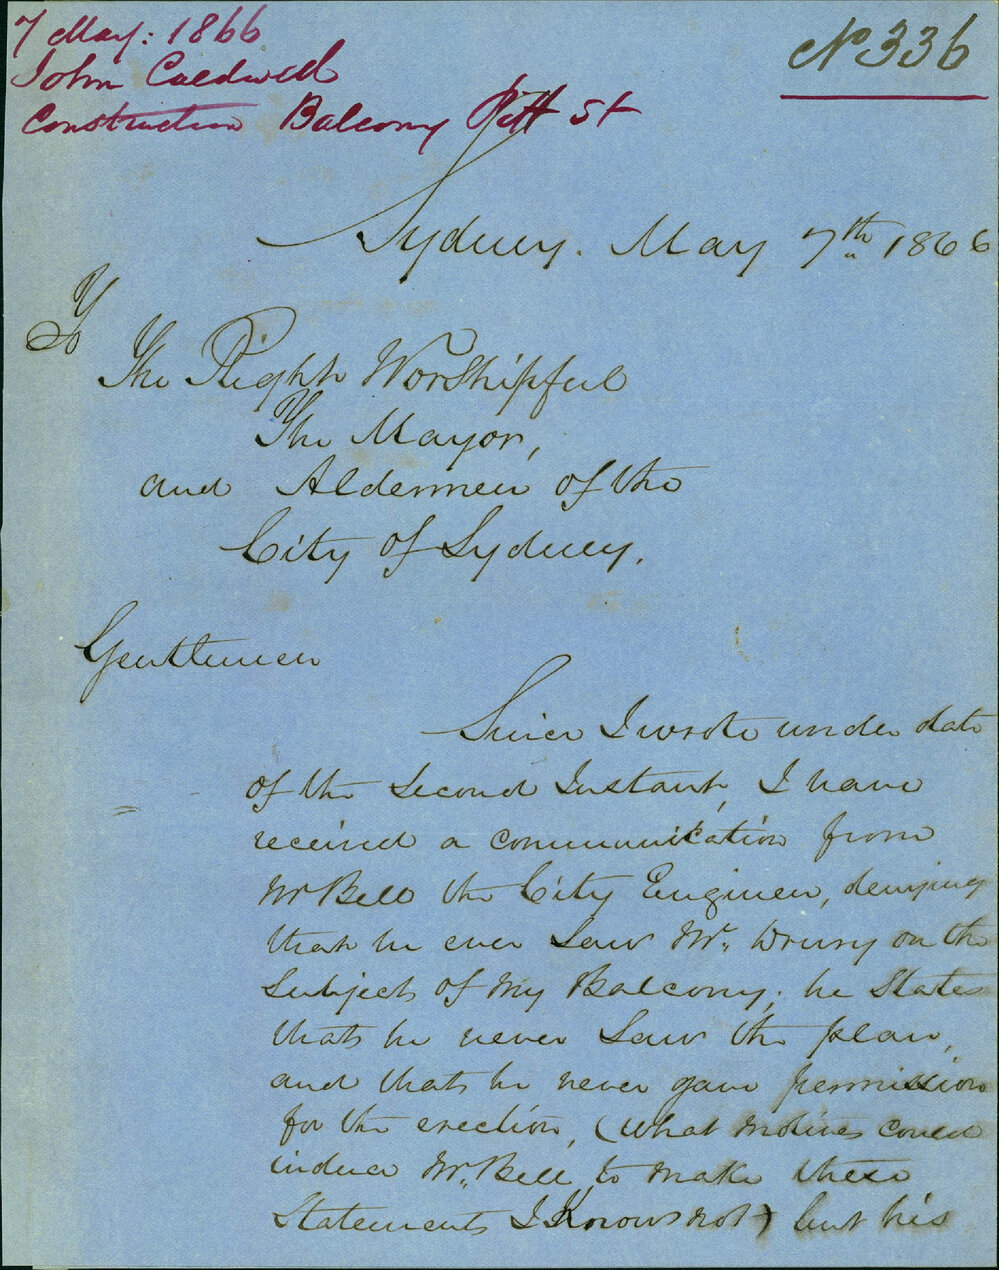 7 May: 1866
John Caldwell
Construction Balcony Pitt St
No 336
Sydney. May 7th 1866
To
The Right Worshipful
The Mayor,
and Aldermen of the
City of Sydney.
Gentlemen
Since I wrote under date
of the Second Instant, I have
received a communication from
Mr Bell the City Engineer, denying
that he ever Saw Mr. Drury on the
Subject of My Balcony, he States
that he never Saw the plan,
and that he never gave permission
for the erection, (what motives could
induce Mr. Bell to make these
Statements I Know not) but his